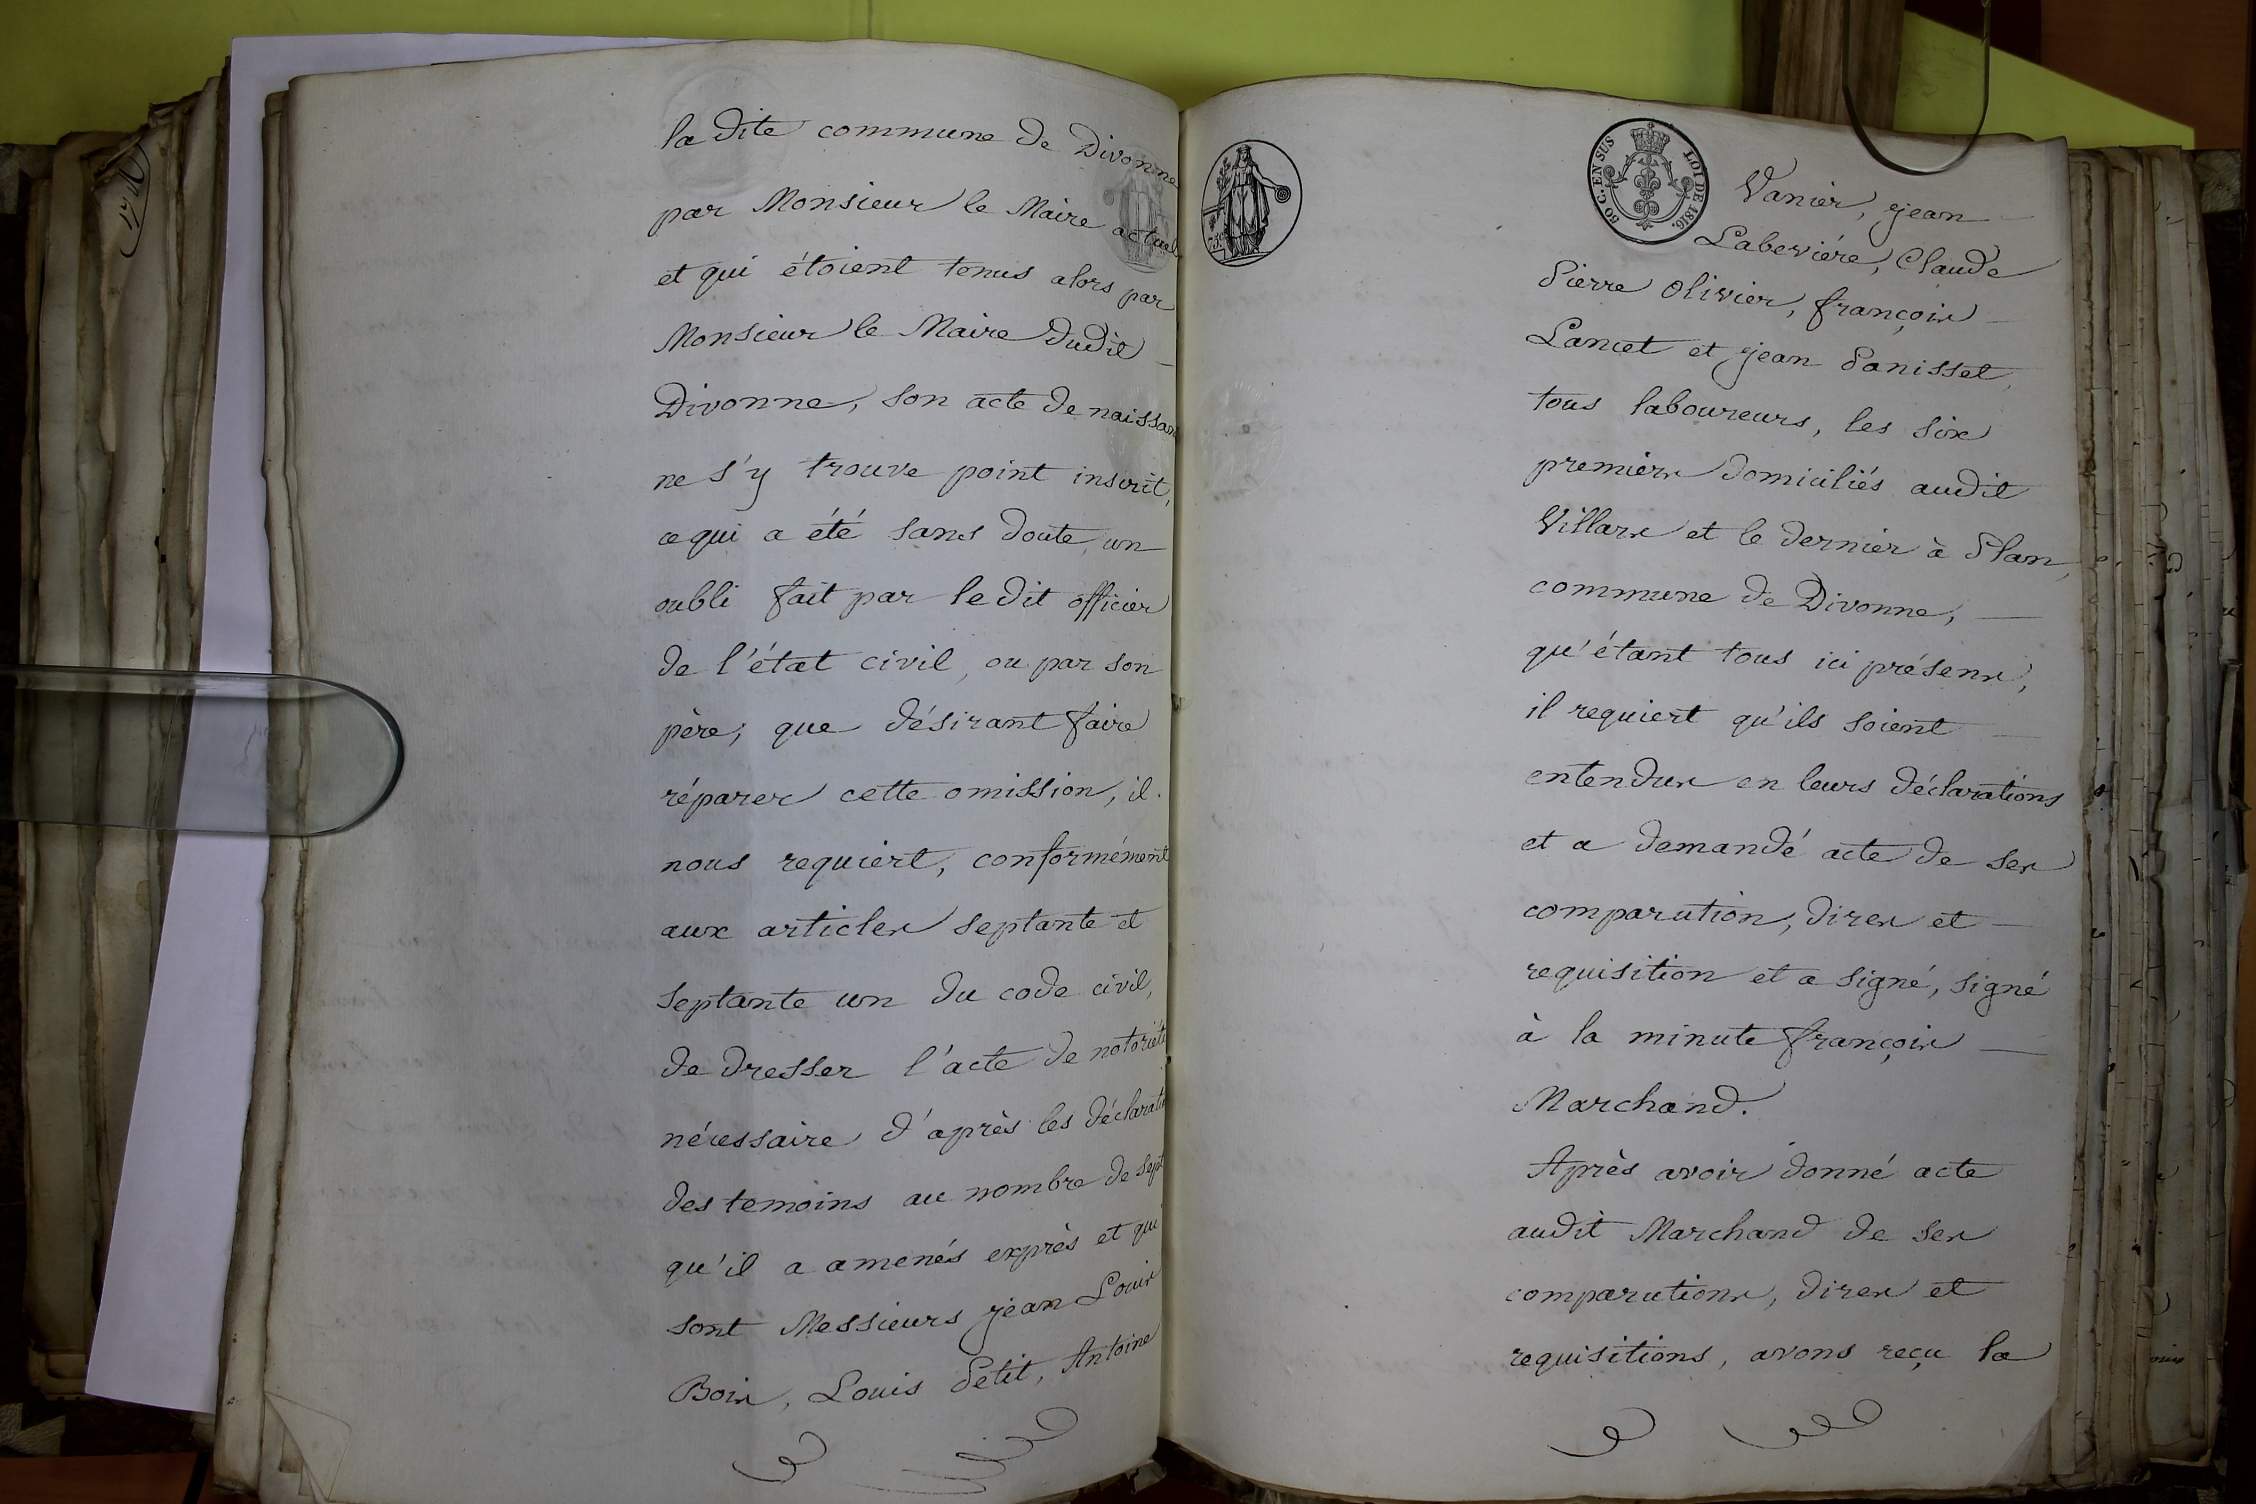 la dite commune de Divonne
par Monsieur le Maire actuel
et qui étoient tenus alors par
Monsieur le Maire dudit
Divonne, son acte de naissan
ne s'y trouve point inscrit,
ce qui a été sans doute un
oubli fait par le dit officier
de l'état civil, ou par son
père; que désirant faire
réparer cette omission, il
nous requiert, conformément
aux articles septante et
septante un du code civil,
de dresser l'acte de notoriété
nécessaire d'après les déclarati
des temoins au nombre de sept
qu'il a amenés exprès et qui
sont Messieurs jean Louis
Bois, Louis Petit, Antoine
50 C. EN SUS LOI DE 1816.
75c
Vanier, jean
Laberviére, Claude
Pierre Olivier, françois
Lancet et jean Panisset,
tous laboureurs, les six
premiers domiciliés audit
Villars et le dernier à Plan,
commune de Divonne,
qu'étant tous ici présens,
il requiert qu'ils soient
entendus en leurs déclarations
et a demandé acte de ses
comparution, dires et
requisition et a signé, signé
à la minute françois
Marchand.
Après avoir donné acte
audit Marchand de ses
comparutions, dires et
requisitions, avons reçu la